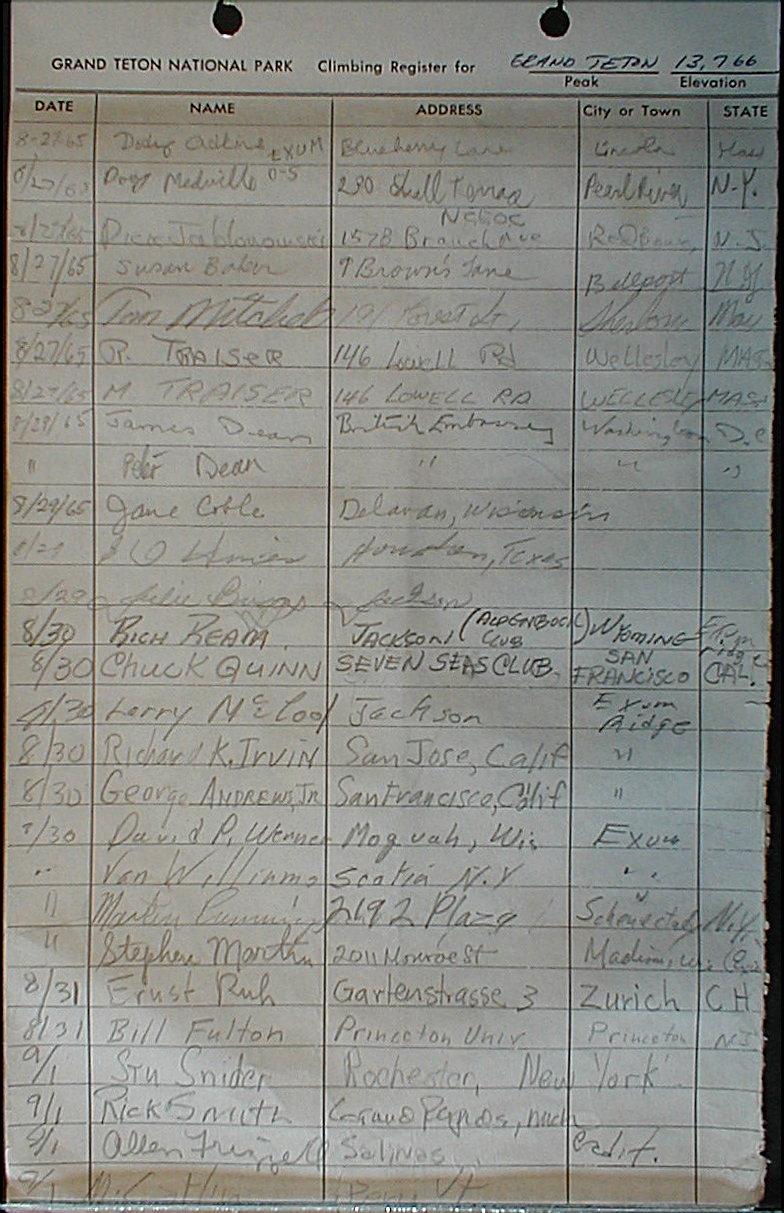 GRAND TETON NATIONAL PARK Climbing Register for GRAND TETON 13,766
Peak Elevation
DATE NAME ADDRESS City or Town STATE
8-27-65 EXUM Blueberry Lane Lincoln
8/27/65 Doug 0-5 290 Shell Pearl River N.Y.
8/27/65 1578 Branch Ave Red Bank N.J.
8/27/65 Susan Baker 7 Brown's Lane Bellport N.Y.
8-27/65 Tom Mitchell 191 Forest St,
8/27/65 R. TRAISER 146 Lowell Rd Wellesley MASS
8/27/65 M TRAISER 146 LOWELL RD WELLESLEY MASS
8/29/65 James Dean British Embassy Washington D.C
" Peter Dean " " "
8/29/65 Jane Coble Delavan, Wisconsin
8/29 Houston, Texas
8/29 Julie Jackson
8/30 RICH REAM. JACKSON (ALPENBOCK CLUB) WYOMING Exum Ridge
8/30 CHUCK QUINN SEVEN SEAS CLUB. SAN FRANCISCO CAL.
8/30 Larry Jackson Exum Ridge
8/30 Richard K. IRVIN San Jose, Calif "
8/30 George ANDREWS, JR San Francisco, Calif "
8/30 David P. Werner Moquah, Wis Exum
" Van Williams Scotia N.Y "
" Martin 2692 Plaza Schenectady N.Y.
" Stephen 2011 Monroe St Madison,
8/31 Ernst Ruh Gartenstrasse 3 Zurich CH
8/31 Bill Fulton Princeton Univ. Princeton NJ
9/1 Stu Snider Rochester, New York
9/1 Rick Smith Grand Rapids, Mich
9/1 Allen Frizzell Salinas, Calif.
9/1 Vt